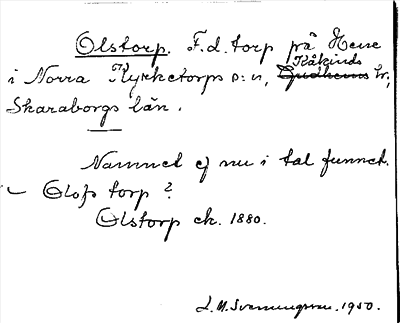 Olstorp. F.d. torp på Hene
Kåkinds
i Norra Kyrketorps s:n, Gudhems hr,
Skaraborgs län.
Namnet ej nu i tal funnet.
– Olofs torp?
Olstorp ek. 1880.
L. M. Svenungsson. 1950.